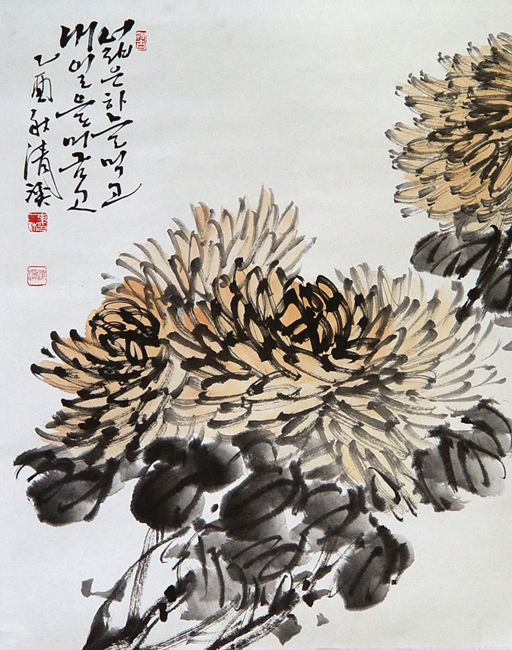 넓은하늘먹고
내일을머금고
乙酉秋清